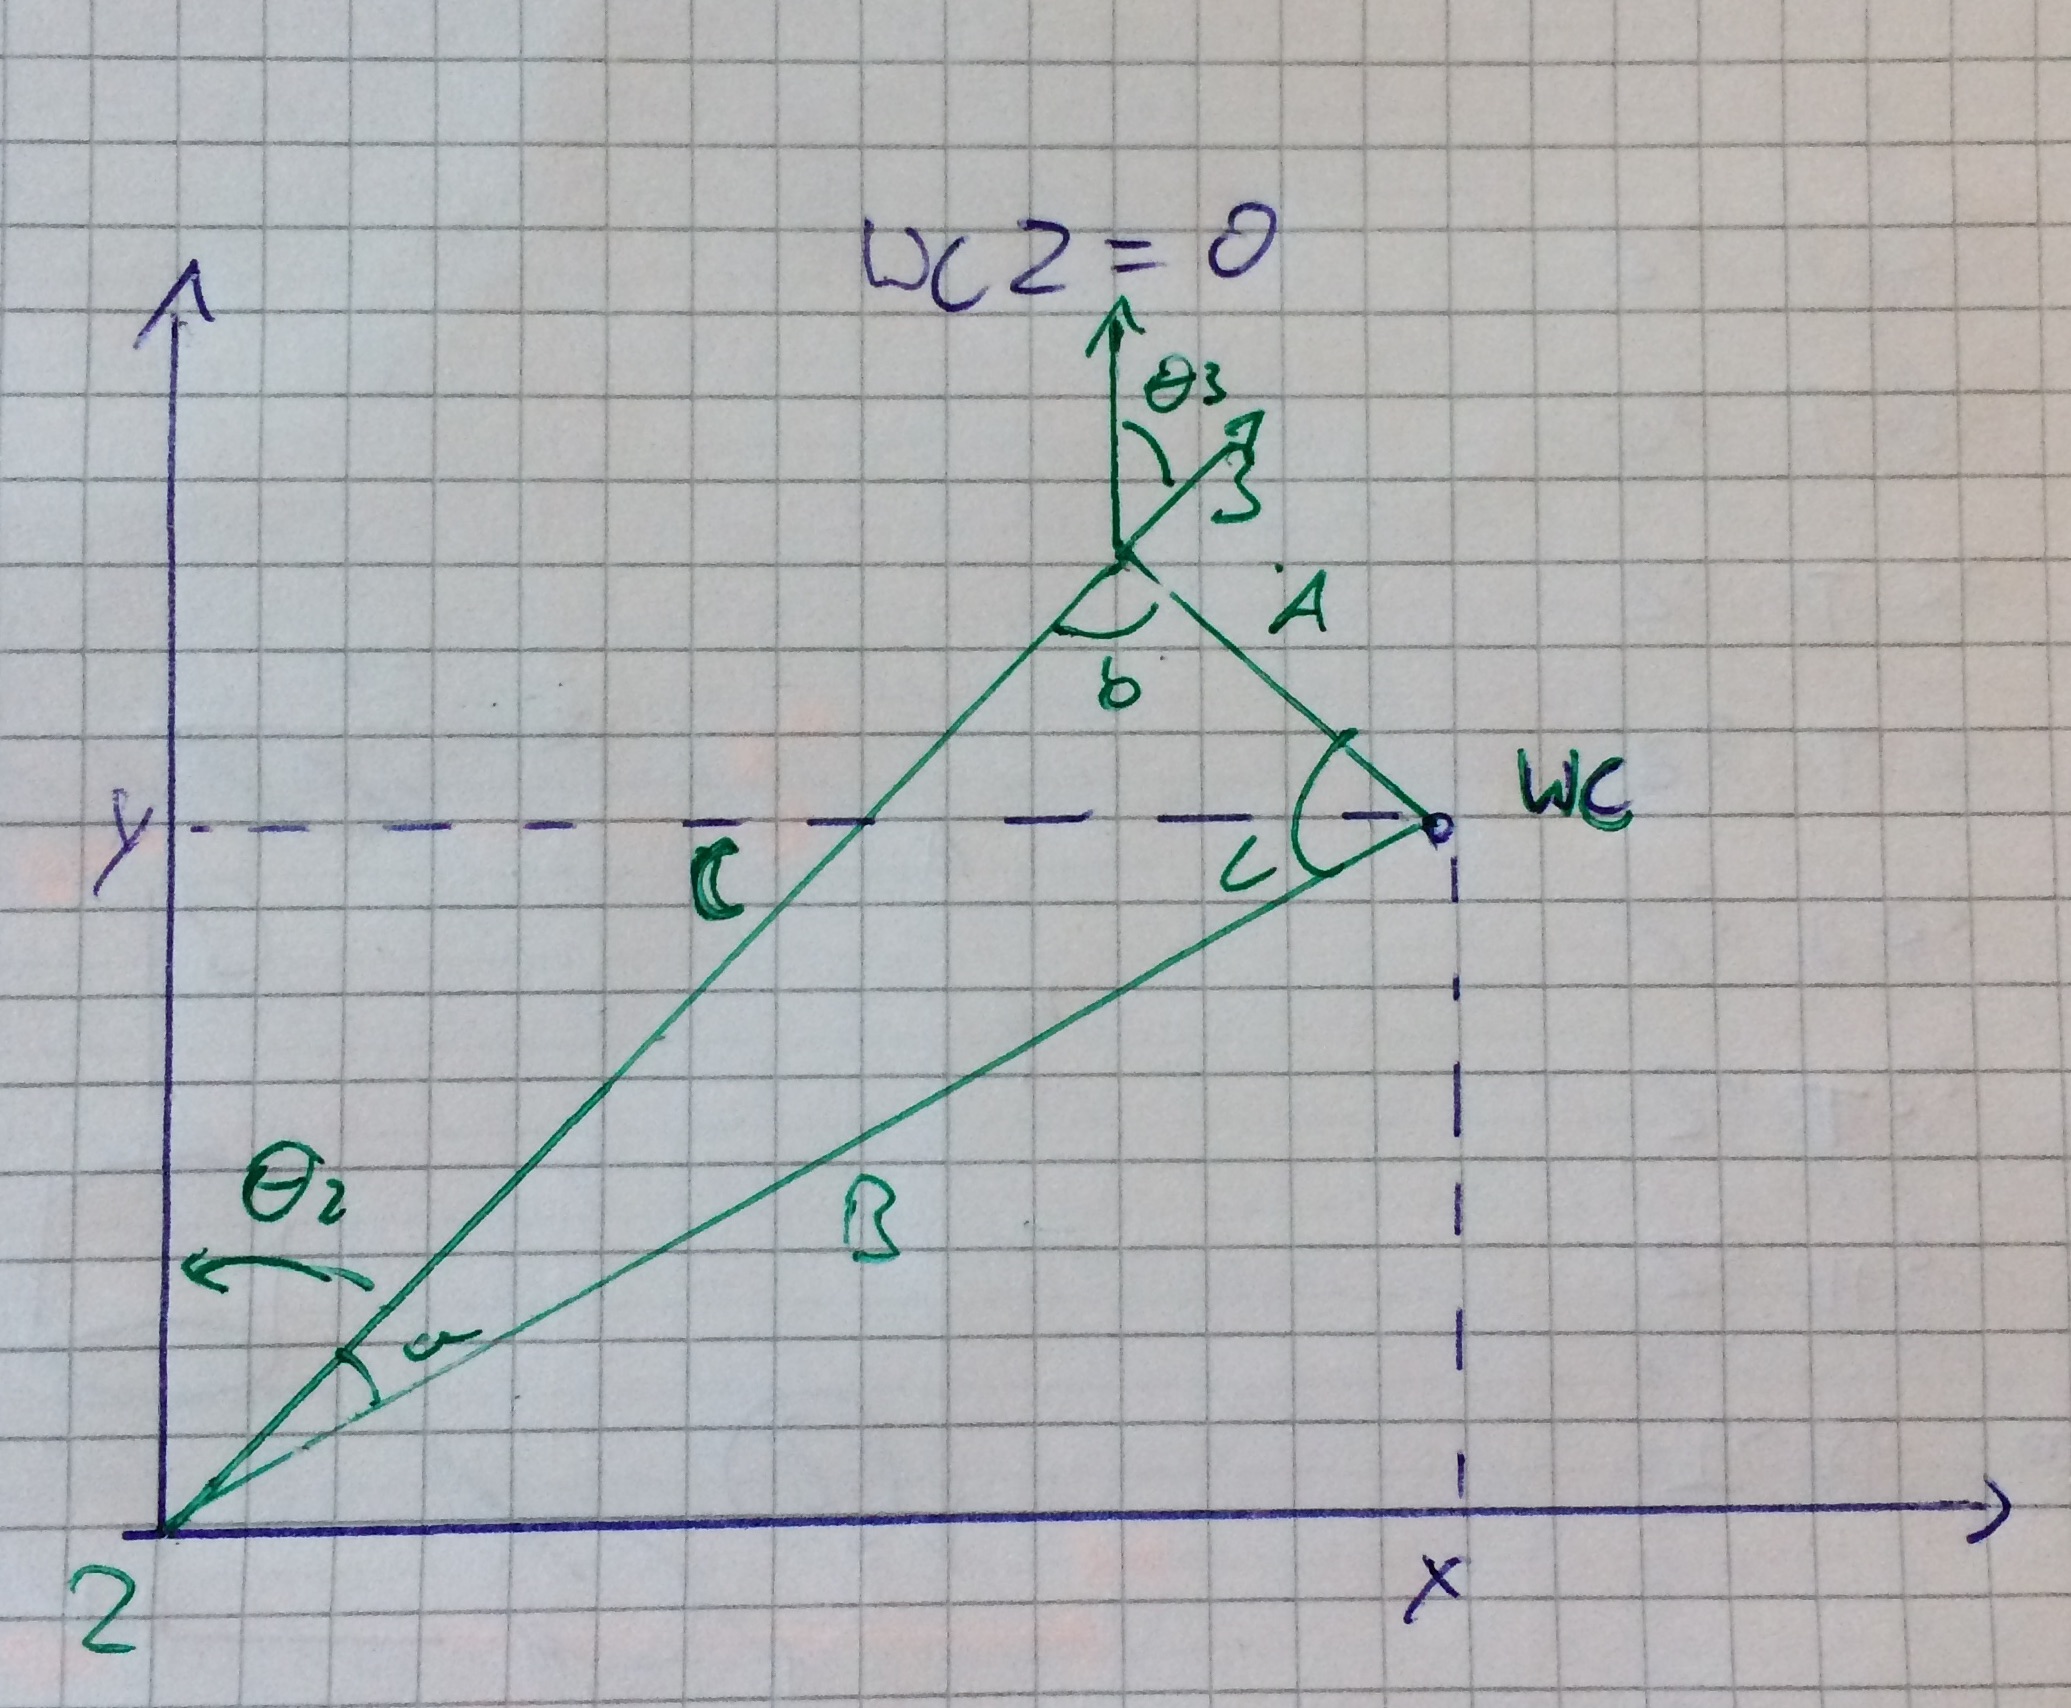 WCZ = 0
θ3
3
A
b
WC
y
C
c
B
θ2
a
2
x